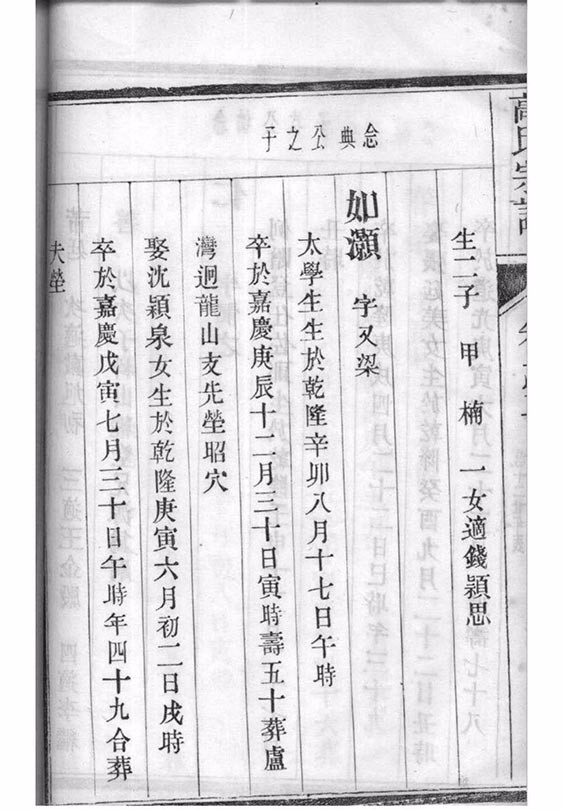 高氏宗譜
生二子 甲 楠 一女適錢穎思
念典公之子
如灝 字又梁
太學生生於乾隆辛卯八月十七日午時
卒於嘉慶庚辰十二月三十日寅時壽五十葬盧
灣迴龍山支先塋昭穴
娶沈穎泉女生於乾隆庚寅六月初二日戌時
卒於嘉慶戊寅七月三十日午時年四十九合葬
夫塋